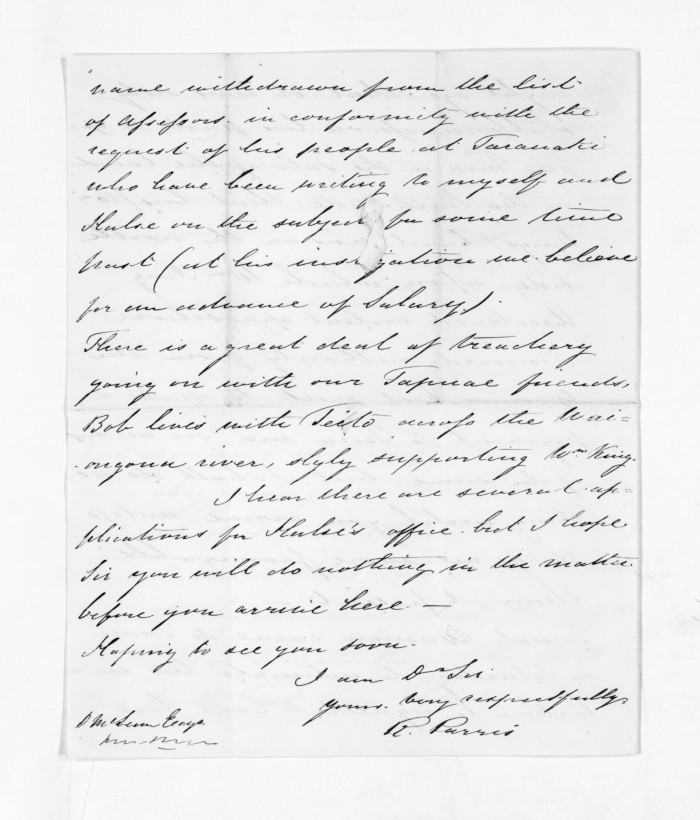 name withdrawn from the list
of Assessors in conformity with the
request of his people at Taranaki
who have been writing to myself and
Halse on the subject for some time
past (at his instigation we believe
for an advance of Salary).
There is a great deal of treachery
going on with our Tapuae friends,
Bob lives with Teito across the Wai=
ongona river, slyly supporting Wm King.
I hear there are several ap=
plications for Halse's office but I hope
Sir you will do nothing in the matter
before you arrive here. —
Hoping to see you soon.
I am Dr Sir
yours very respectfully
R. Parris
D McLean Esqr